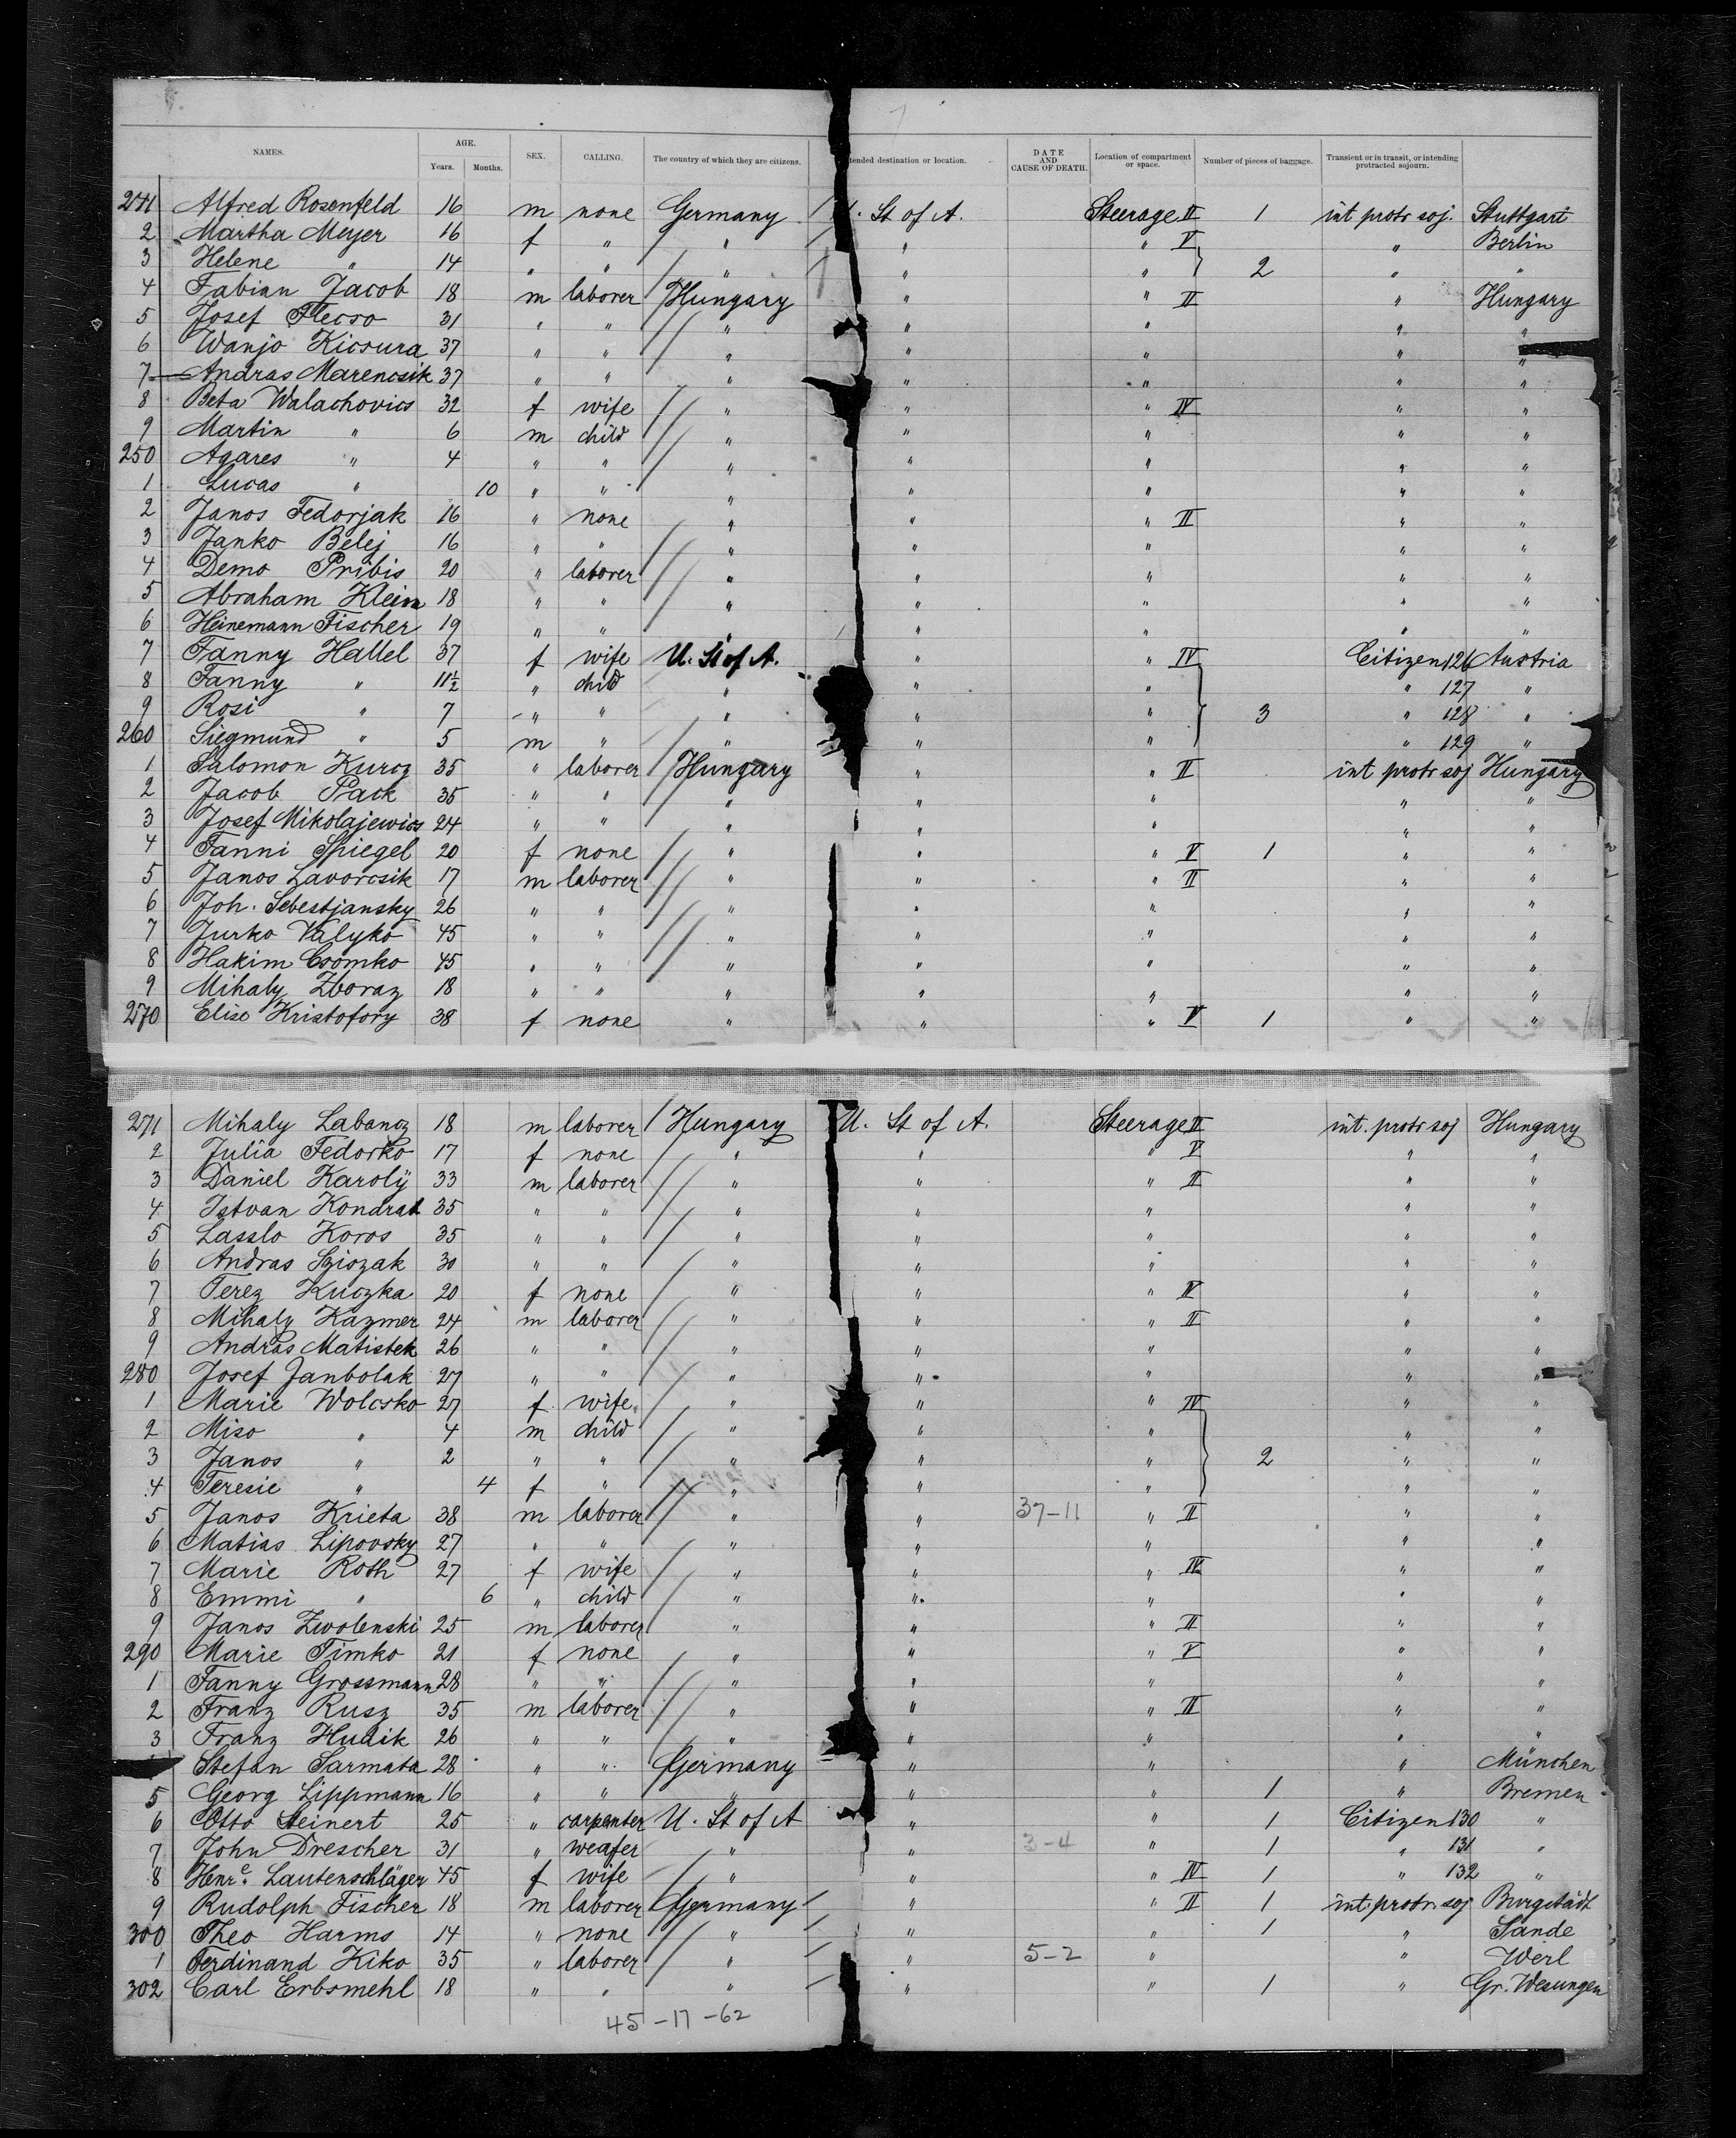 NAMES. AGE. Years. Months. SEX. CALLING. The country of which they are citizens. tended destination or location. DATE AND CAUSE OF DEATH. Location of compartment or space. Number of pieces of baggage. Transient or in transit, or intending protracted sojourn.
241 Alfred Rosenfeld 16 m none Germany U. St of A. Steerage II 1 int protr soj. Stuttgart
2 Martha Meyer 16 f " " " " V " Berlin
3 Helene " 14 " " " " " 2 " "
4 Fabian Jacob 18 m laborer Hungary " " II " Hungary
5 Josef Flecso 31 " " " " " " "
6 Wanjo Kicsura 37 " " " " " " "
7 Andras Marencsik 37 " " " " " " "
8 Beta Walachovics 32 f wife " " " IV " "
9 Martin " 6 m child " " " " "
250 Agares " 4 " " " " " " "
1 Lucas " 10 " " " " " " "
2 Janos Fedorjak 16 " none " " " II " "
3 Janko Belej 16 " " " " " " "
4 Demo Pribis 20 " laborer " " " " "
5 Abraham Klein 18 " " " " " " "
6 Heinemann Fischer 19 " " " " " " "
7 Fanny Hallel 37 f wife U. St of A. " " IV Citizen 126 Austria
8 Fanny " 11½ " child " " " " 127 "
9 Rosi " 7 " " " " " 3 " 128 "
260 Siegmund " 5 m " " " " " 129 "
1 Salomon Kurcz 35 " laborer Hungary " " II int protr soj Hungary
2 Jacob Pack 35 " " " " " " "
3 Josef Mikolajewics 24 " " " " " " "
4 Fanni Spiegel 20 f none " " " V 1 " "
5 Janos Lavorcsik 17 m laborer " " " II " "
6 Joh. Sebestjansky 26 " " " " " " "
7 Jurko Valyko 45 " " " " " " "
8 Hakim Csomko 45 " " " " " " "
9 Mihaly Zboraz 18 " " " " " " "
270 Elise Kristofory 38 f none " " " V 1 " "
271 Mihaly Labancz 18 m laborer Hungary U. St of A. Steerage II int. protr soj Hungary
2 Julia Fedorko 17 f none " " " V " "
3 Daniel Karolÿ 33 m laborer " " " II " "
4 Istvan Kondrat 35 " " " " " " "
5 Lasslo Koros 35 " " " " " " "
6 Andras Sziszak 30 " " " " " " "
7 Terez Kuczka 20 f none " " " V " "
8 Mihaly Kazmer 24 m laborer " " " II " "
9 Andras Matistek 26 " " " " " " "
280 Josef Janbolak 27 " " " " " " "
1 Marie Wolcsko 27 f wife " " " IV " "
2 Miso " 4 m child " " " " "
3 Janos " 2 " " " " " 2 " "
4 Teresie " 4 f " " " " " "
5 Janos Krieta 38 m laborer " " 37-11 " II " "
6 Matias Lipovsky 27 " " " " " " "
7 Marie Roth 27 f wife " " " IV " "
8 Emmi " 6 " child " " " " "
9 Janos Zwolenski 25 m laborer " " " II " "
290 Marie Timko 21 f none " " " V " "
1 Fanny Grossmann 28 " " " " " " "
2 Franz Rusz 35 m laborer " " " II " "
3 Franz Hudik 26 " " " " " " "
Stefan Sarmata 28 " " Germany " " " München
5 Georg Lippmann 16 " " " " " 1 " Bremen
6 Otto Steinert 25 " carpenter U. St of A " " 1 Citizen 130 "
7 John Drescher 31 " weafer " " 3-4 " 1 " 131 "
8 Henr.e Lautenschläger 45 f wife " " " IV 1 " 132 "
9 Rudolph Fischer 18 m laborer Germany " " II 1 int. protr. soj Burgstädt
300 Theo Harms 14 " none " " " 1 " Sande
1 Ferdinand Kiko 35 " laborer " " 5-2 " " Werl
302 Carl Erbsmehl 18 " " " " " 1 " Gr. Wesungen
45-17-62